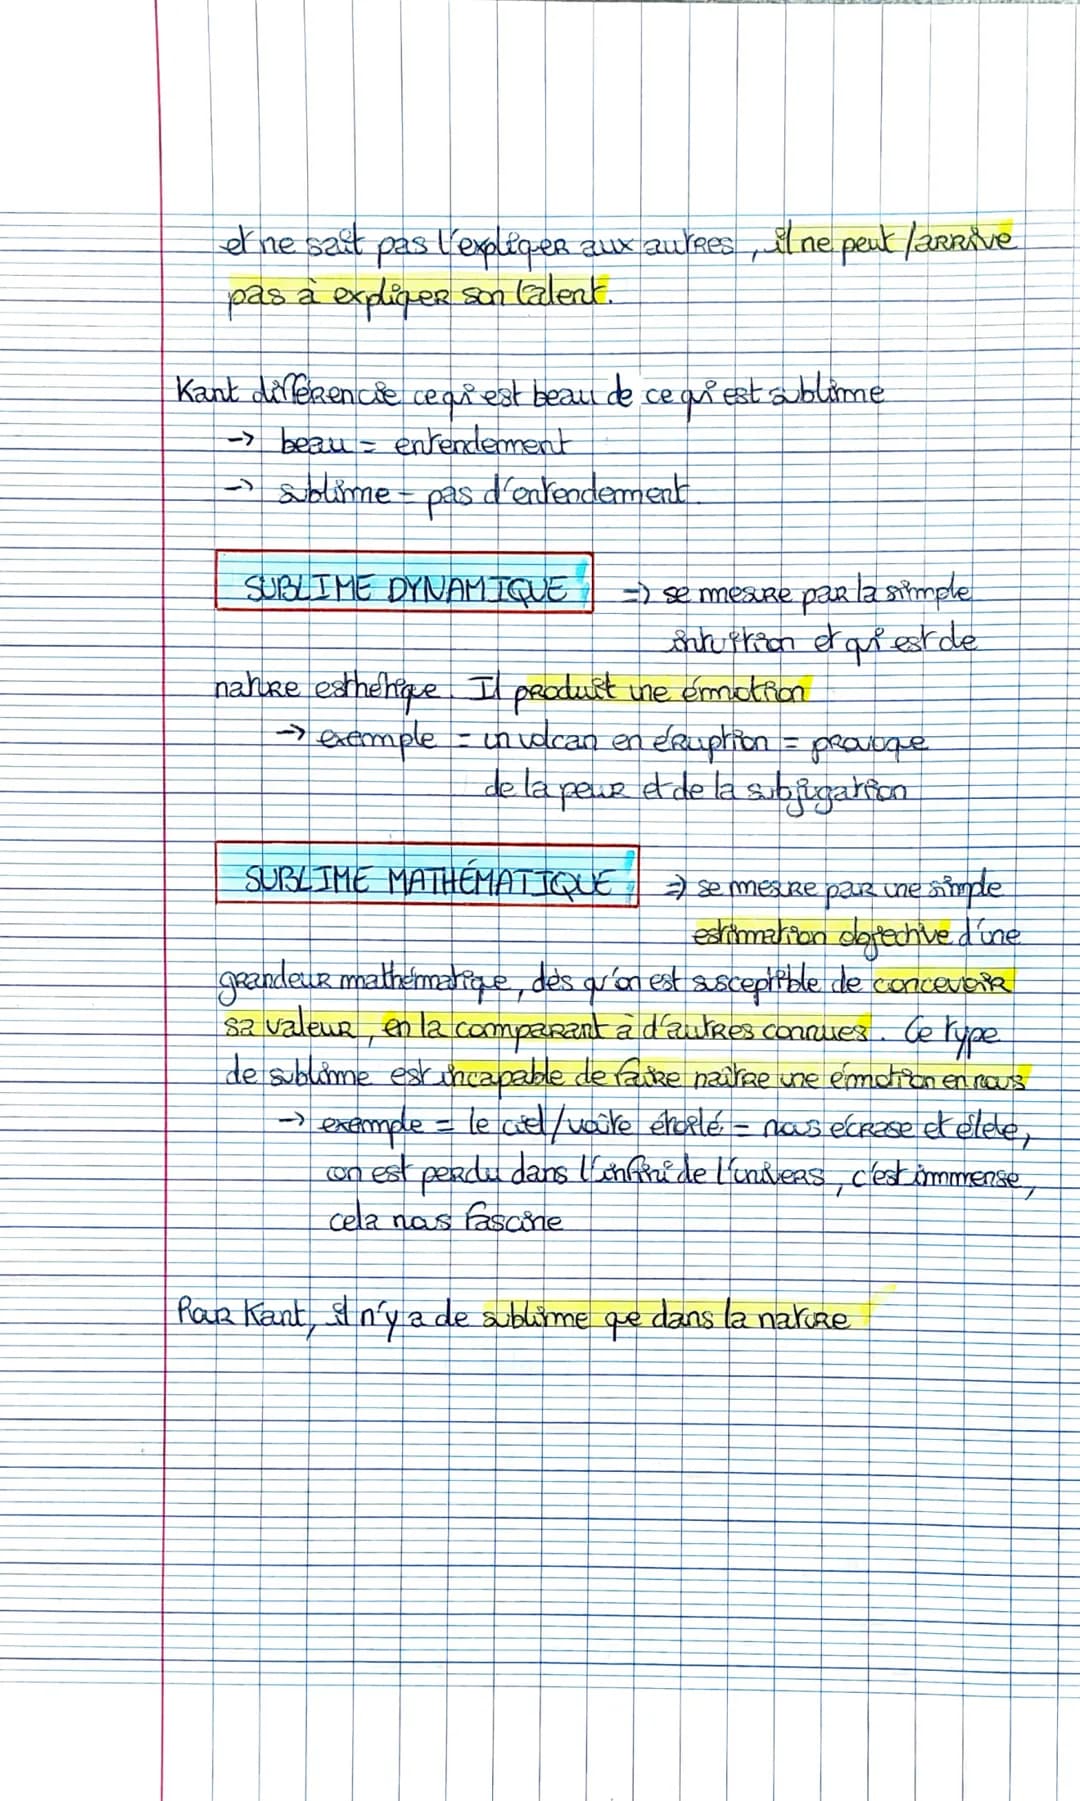 et ne sait pas l'expliquer aux autres, il ne peut / arrive
pas à expliquer son talent.
Kant différencie ce qui est beau de ce qui est sublime
-> beau = entendement
-> sublime = pas d'entendement
SUBLIME DYNAMIQUE => se mesure par la simple
intuition et qui est de
nature esthétique. Il produit une émotion
-> exemple = un volcan en éruption = provoque
de la peur et de la subjugation
SUBLIME MATHÉMATIQUE => se mesure par une simple
estimation objective d'une
grandeur mathématique, dès qu'on est susceptible de concevoir
sa valeur, en la comparant à d'autres connues. Ce type
de sublime est incapable de faire naître une émotion en nous
-> exemple = le ciel/voûte étoilé = nous écrase et élève,
on est perdu dans l'infini de l'univers, c'est immense,
cela nous fascine
Pour Kant, il n'y a de sublime que dans la nature